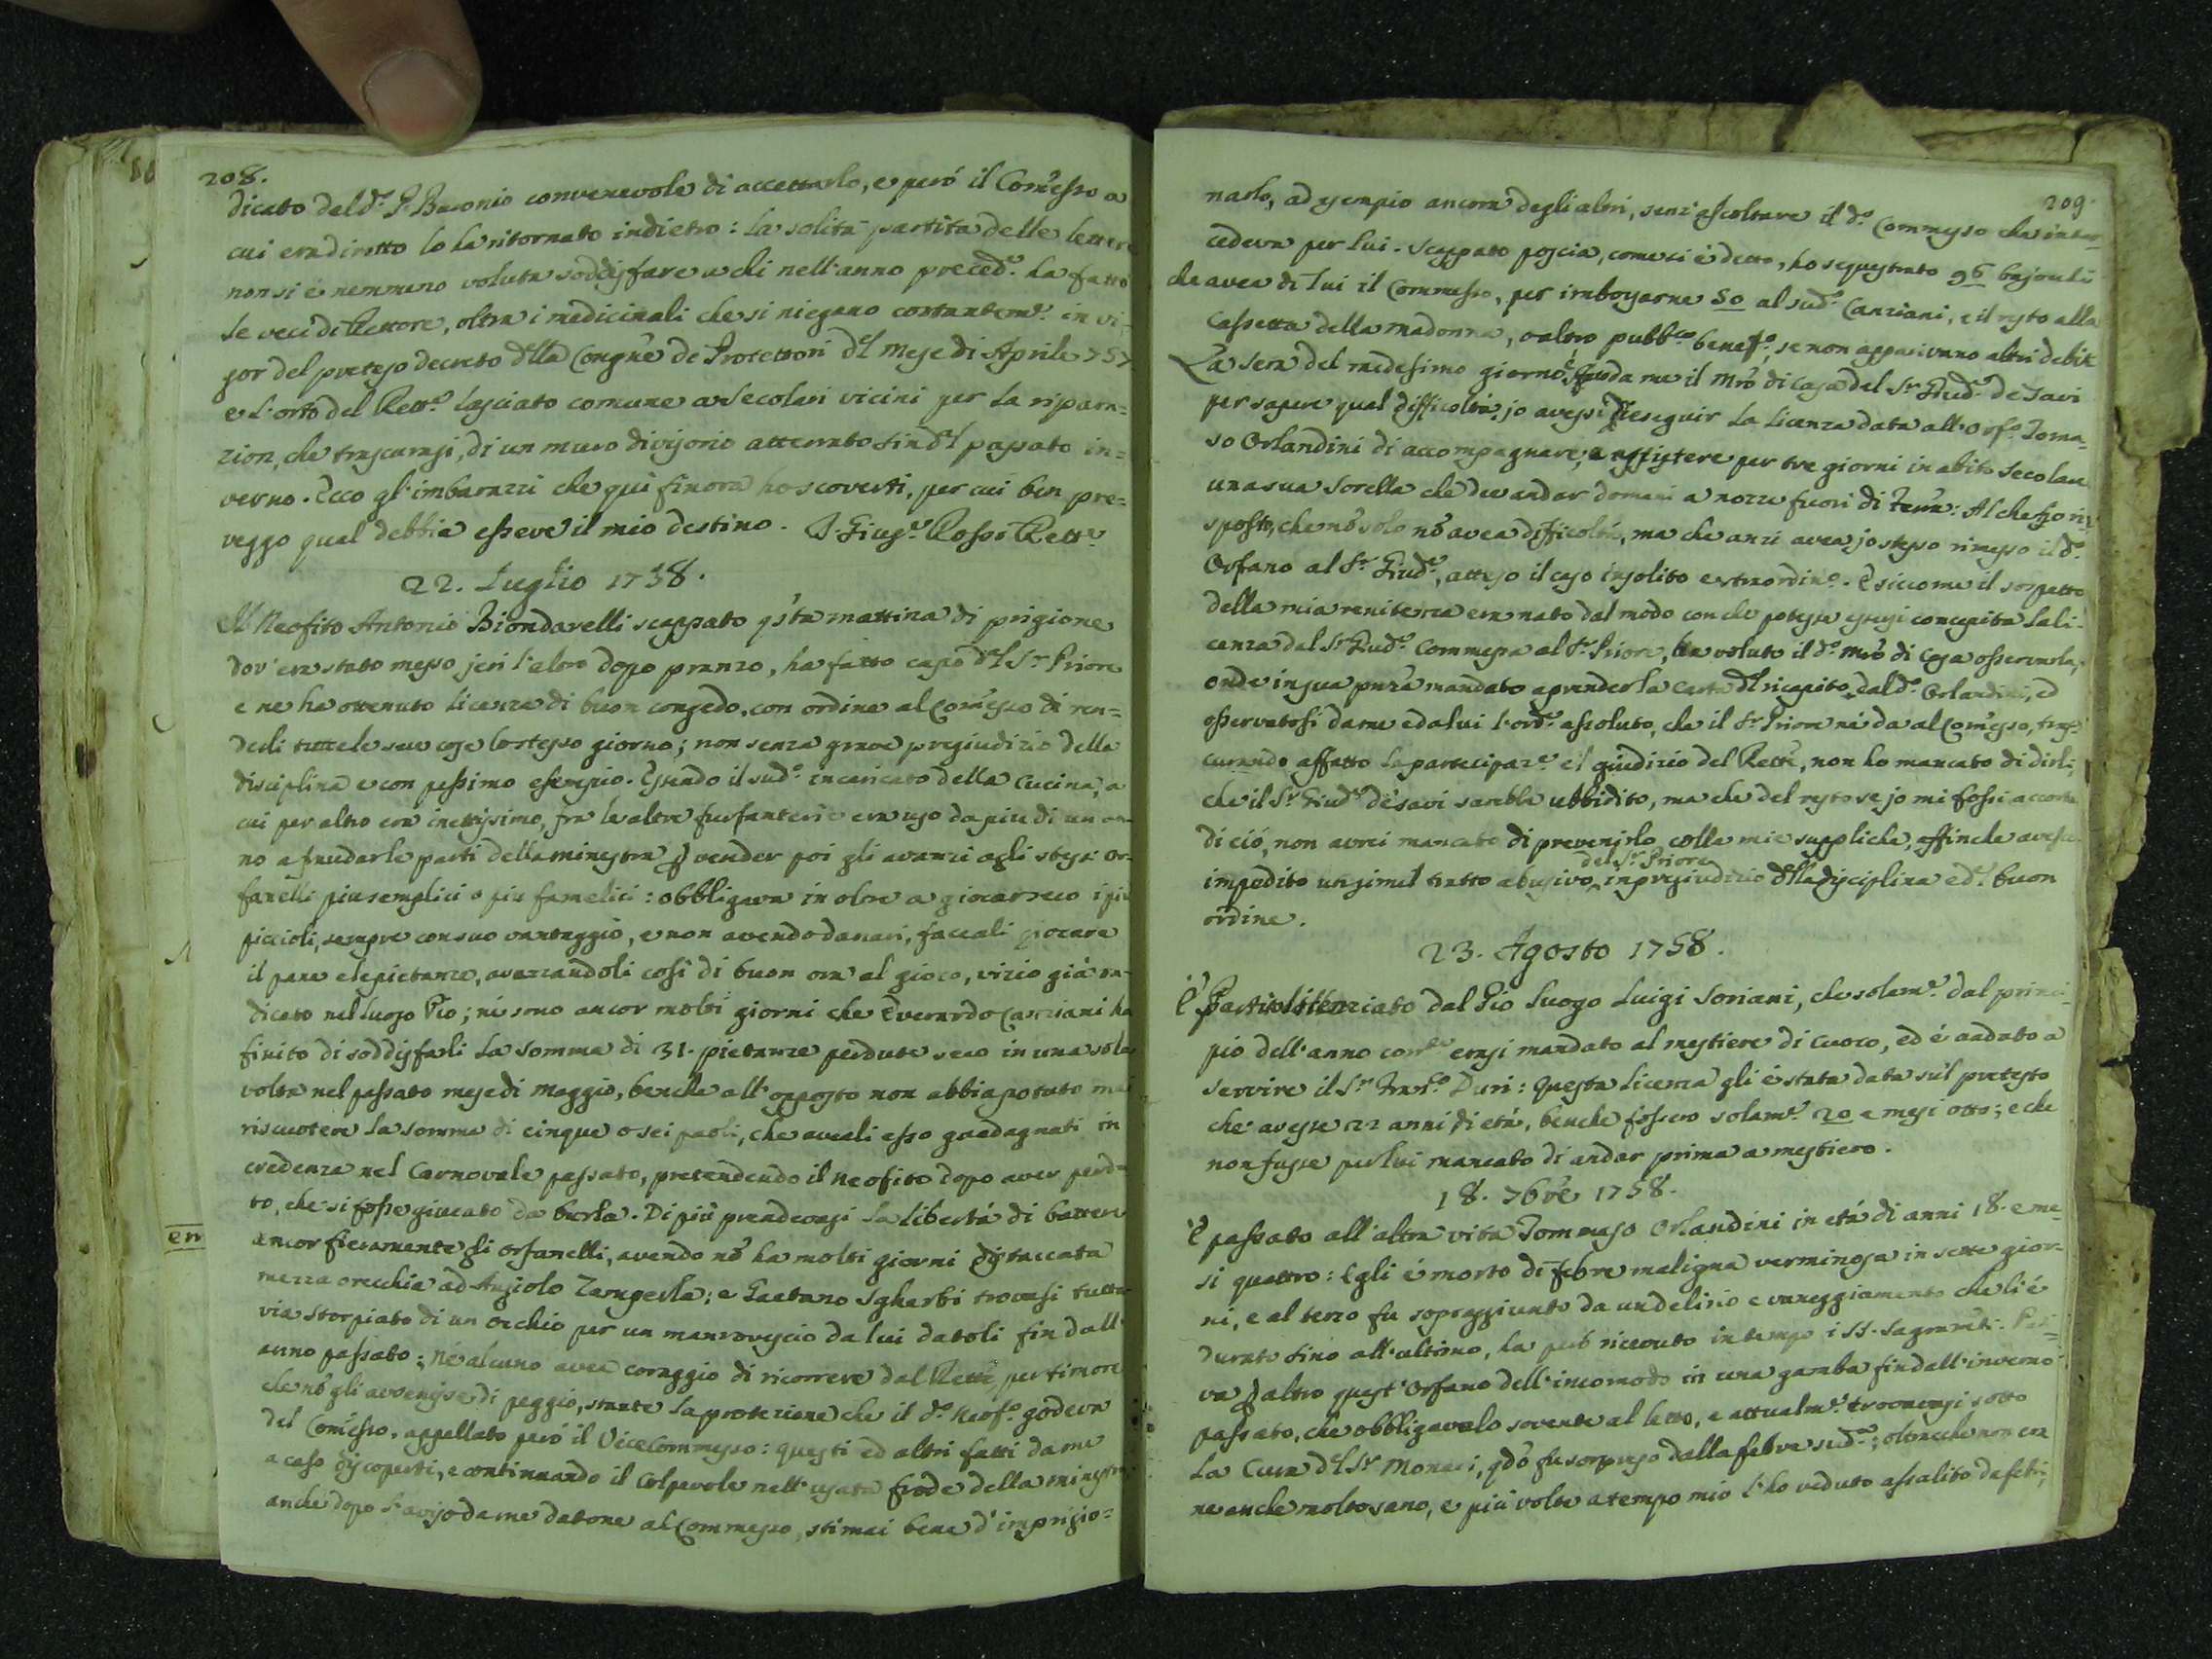 208.
dicato dal d.º P. Baronio convenevole di accettarlo, e però il Com̃esso a
cui era diretto lo ha ritornato indietro: la solita partita delle lettere
non si è nemmeno voluta soddisfare a chi nell'anno preced.e ha fatto
le veci di Rettore, oltra i medicinali che si niegano costantem.e in vi-
gor del preteso decreto d̃lla Congñe de Protettori d̃l Mese di Aprile 757
e l'orto del Rett.e lasciato comune a Secolari vicini per la ripara=
zion, che trascurasi, di un muro divisorio atterrato sin d̃l passato in=
verno. Ecco gl'imbarazzi che quì finora ho scoverti, per cui ben pre=
veggo qual debbia essere il mio destino. P. Giusp.e Rossi Rett.e
22. Luglio 1758.
Il Neofito Antonio Biondarelli scappato q̃sta mattina di prigione
dov'era stato messo jeri l'altro dopo pranzo, ha fatto capo d̃l S.r Priore
e ne ha ottenuto licenza di buon congedo, con ordine al Com̃esso di ren=
derli tutte le sue cose lo stesso giorno; non senza grave pregiudizio della
disciplina e con pessimo esempio. Essendo il sud.º incaricato della Cucina, a
cui per altro era inettissimo, fra le altre furfanterie era uso da piu di un an-
no a fraudar le parti della minestra p vender poi gli avanzi agli stessi Or-
fanelli piu semplici o piu famelici: obbligava in oltre a giocar seco i più
piccioli, sempre con suo vantaggio, e non avendo danari, faceali giocare
il pane e le pietanze, avezzandoli così di buon ora al gioco, vizio già ra-
dicato nel luogo Pio; ni sono ancor molti giorni che Everardo Canziani ha
finito di soddisfarli la somma di 31. pietanze perdute seco in una sola
volta nel passato mese di Maggio, benche all'opposto non abbia potuto mai
riscuotere la somma di cinque o sei paoli, che aveali esso guadagnati in
credenza nel Carnovale passato, pretendendo il Neofito dopo aver perdu-
to, che si fosse giucato da burla. Di più prendevasi la libertà di batter
ancor fieramente gli orfanelli, avendo nõ ha molti giorni distaccata
mezza orecchia ad Angiolo Zamperla; e Gaetano Sgharbi trovasi tutta
via storpiato di un occhio per un manrovescio da lui datoli fin dall'
anno passato; ne alcuno avea coraggio di ricorrere dal Rett̃e, per timore
che nõ gli avvenisse di peggio, stante la protezione che il d.º Neof.º godeva
del Com̃esso, appellato però il ViceCommesso: questi ed altri fatti da me
a caso discoperti, e continuando il Colpevole nell'usata frode della minestra
anche dopo l'aviso da me datone al Commesso, stimai bene d'imprigio=
209.
narlo, ad esempio ancora degli altri, senz'ascoltare il d.º Commesso che inter-
cedeva per lui. Scappato poscia, come si è detto, ho sequestrato 96 bajocchi
che avea di lui il Commesso, per imborsarne 50 al sud.º Canziani, e il resto alla
Cassetta della Madonna, o altro pubb.co benef.º, se non apparivano altri debiti
La sera del medesimo giorno è da me il Mrõ di Casa del S.r Giud.e De Savi
per sapere qual difficoltà jo avessi d'eseguir la licenza data all'Orf.º Toma-
so Orlandini di accompagnare, e assistere per tre giorni in abito Secolare
una sua Sorella che dee andar domani a nozze fuori di Terra: Al che ho ri-
sposto, che nõ solo nõ avea difficoltà, ma che anzi avea jo stesso rimesso il d.º
Orfano al S.r Giud.e, atteso il caso insolito e straordin.º. E siccome il sospetto
della mia renitenza era nato dal modo con che potesse essersi concepita la li-
cenza dal S.r Giud.e Commessa al S.r Priore, ha voluto il d.º Mrõ di Casa osservarla,
onde in sua pñza mandato a prender la carta d̃l ricapito dal d.º Orlandini, ed
osservatosi da me e da lui l'ord.e assoluto, che il S.r Priore ne da al Com̃esso, tras-
curando affatto la partecipaz.e e'l giudizio del Rett̃e, non ho mancato di dirli,
che il S.r Giud.e de Savi sarebbe ubbidito, ma che del resto se jo mi fossi accorto
di ciò, non avrei mancato di prevenirlo colle mie suppliche, affinche avesse
impedito un simil tratto abusivo del S.r Priore in pregiudizio d̃lla disciplina e d.l buon
ordine.
23. Agosto 1758.
È partito licenziato dal Pio Luogo Luigi Soriani, che solam.e dal princi-
pio dell'anno corr.te erasi mandato al mestiere di Cuoco, ed è andato a
servire il S.r Fran.co Duri: Questa licenza gli è stata data sul pretesto
che avesse 22 anni di età, benche fossero solam.e 20 e mesi otto; e che
non fusse per lui mancato di andar prima a mestiero.
18. 7bre 1758.
È passato all'altra vita Tommaso Orlandini in età di anni 18. e me-
si quattro: Egli è morto di febre maligna verminosa in sette gior-
ni, e al terzo fu sopraggiunto da un delirio e vaneggiamento che li è
durato sino all'ultimo, ha però ricevuto in tempo i SS. Sagram̃ti. Pati-
va p altro quest'Orfano dell'incomodo in una gamba fin dall'inverno
passato, che obbligavalo sovente al letto, e attualm.e trovavasi sotto
la Cura d̃l S.r Monari, qdõ fu sorpreso dalla febre sud.a; oltrecche non era
ne anche molto sano, e più volte a tempo mio l'ho veduto assalito da febri,